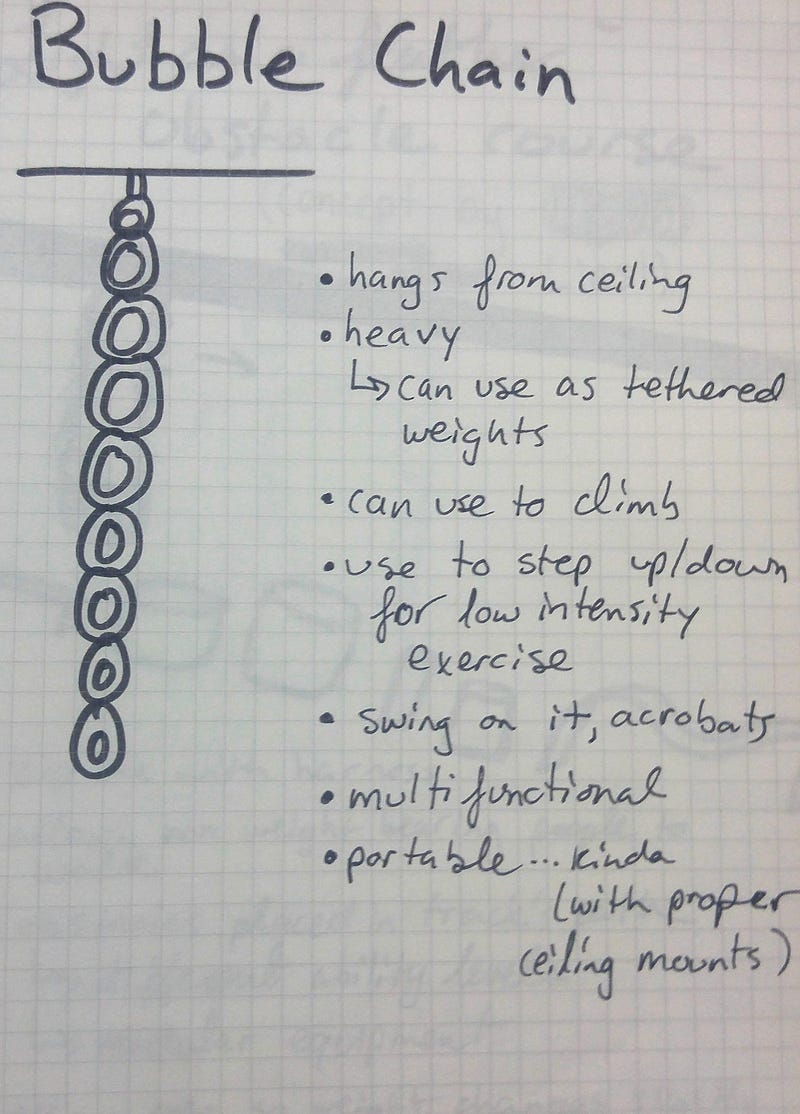 Bubble Chain
obstacle course
• hangs from ceiling
• heavy
↳ can use as tethered
weights
• can use to climb
• use to step up/down
for low intensity
exercise
• swing on it, acrobats
• multifunctional
• portable... kinda
(with proper
ceiling mounts)